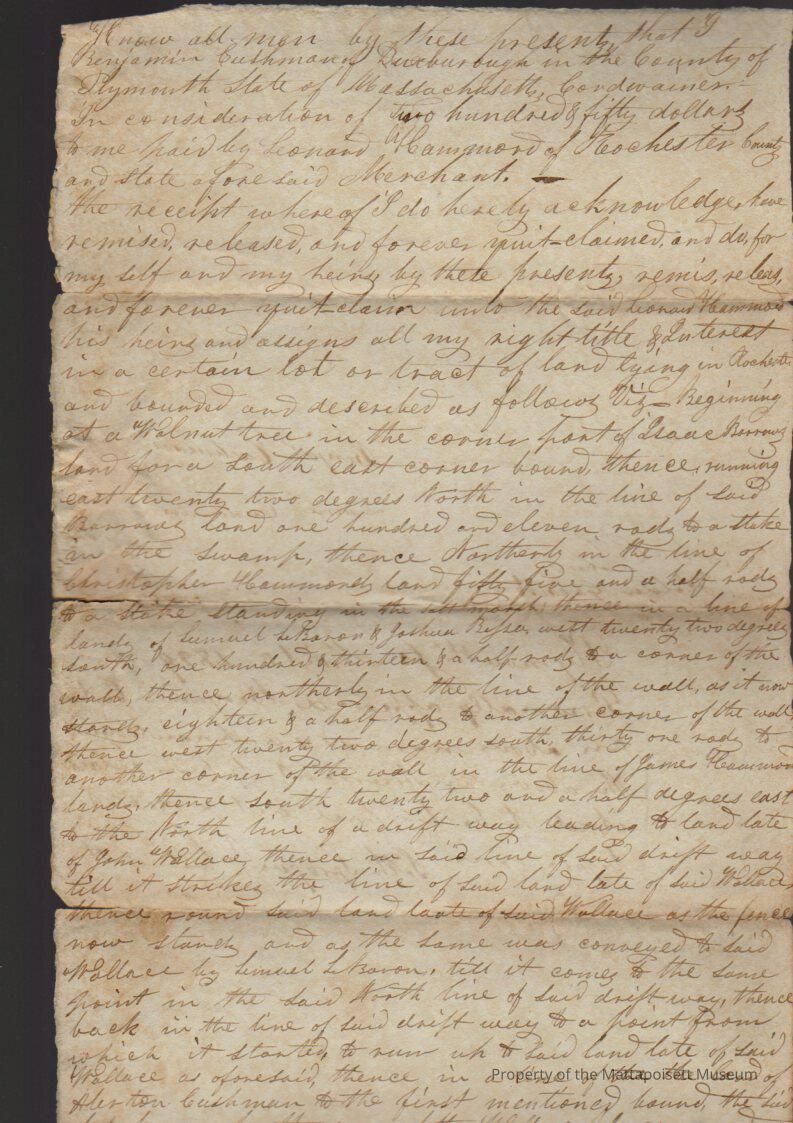 Know all men by these presents, that I
Benjamin Cushman of Duxborough in the County of
Plymouth State of Massachusetts, Cordwainer.
In consideration of two hundred & fifty dollars
to me paid by Leonard Hammond of Rochester County
and State aforesaid Merchant.
the receipt whereof I do hereby acknowledge, have
remised, released, and forever quit-claimed, and do, for
my self and my heirs by these presents, remis, releas,
and forever quit-claim unto the said Leonard Hammond
his heirs and assigns all my right title & Interest
in a certain lot or tract of land lying in Rochester
and bounded and described as follows Viz - Beginning
at a Walnut tree in the corner part of Isaac Barrows
land for a South east corner bound, thence, running
east twenty two degrees North in the line of said
Barrows land one hundred and eleven rods to a stake
in the swamp, thence Northerly in the line of
Christopher Hammonds land fifty five and a half rods
to a stake standing in the salt marsh, thence in a line of
lands of Lemuel LeBaron & Joshua west twenty two degrees
south, one hundred & thirteen & a half rods to a corner of the
wall, thence northerly in the line of the wall, as it now
stands, eighteen & a half rods to another corner of the wall
thence west twenty two degrees south, thirty one rods to
another corner of the wall in the line of James Hammond
lands, thence south twenty two and a half degrees east
to the North line of a drift way leading to land late
of John Wallace, thence in said line of said drift way
till it strikes the line of said land late of said Wallace,
thence round said land laate of said Wallace as the fence
now stands, and as the same was conveyed to said
Wallace by Lemuel LeBaron, till it comes to the same
point in the said North line of said drift way, thence
back in the line of said drift way to a point from
which it started, to run up to said land late of said
Wallace as aforesaid, thence in a line of the land of
Alerton Cushman to the first mentioned bound, the said
Property of the Mattapoisett Museum